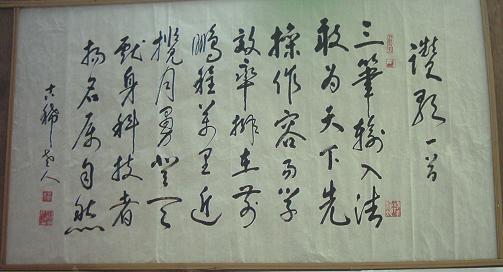 讚歌一首
三筆輸入法
敢为天下先
操作容易学
效率排在前
鵬程萬里近
攬月勇登天
献身科技者
扬名属自然
古稀老人